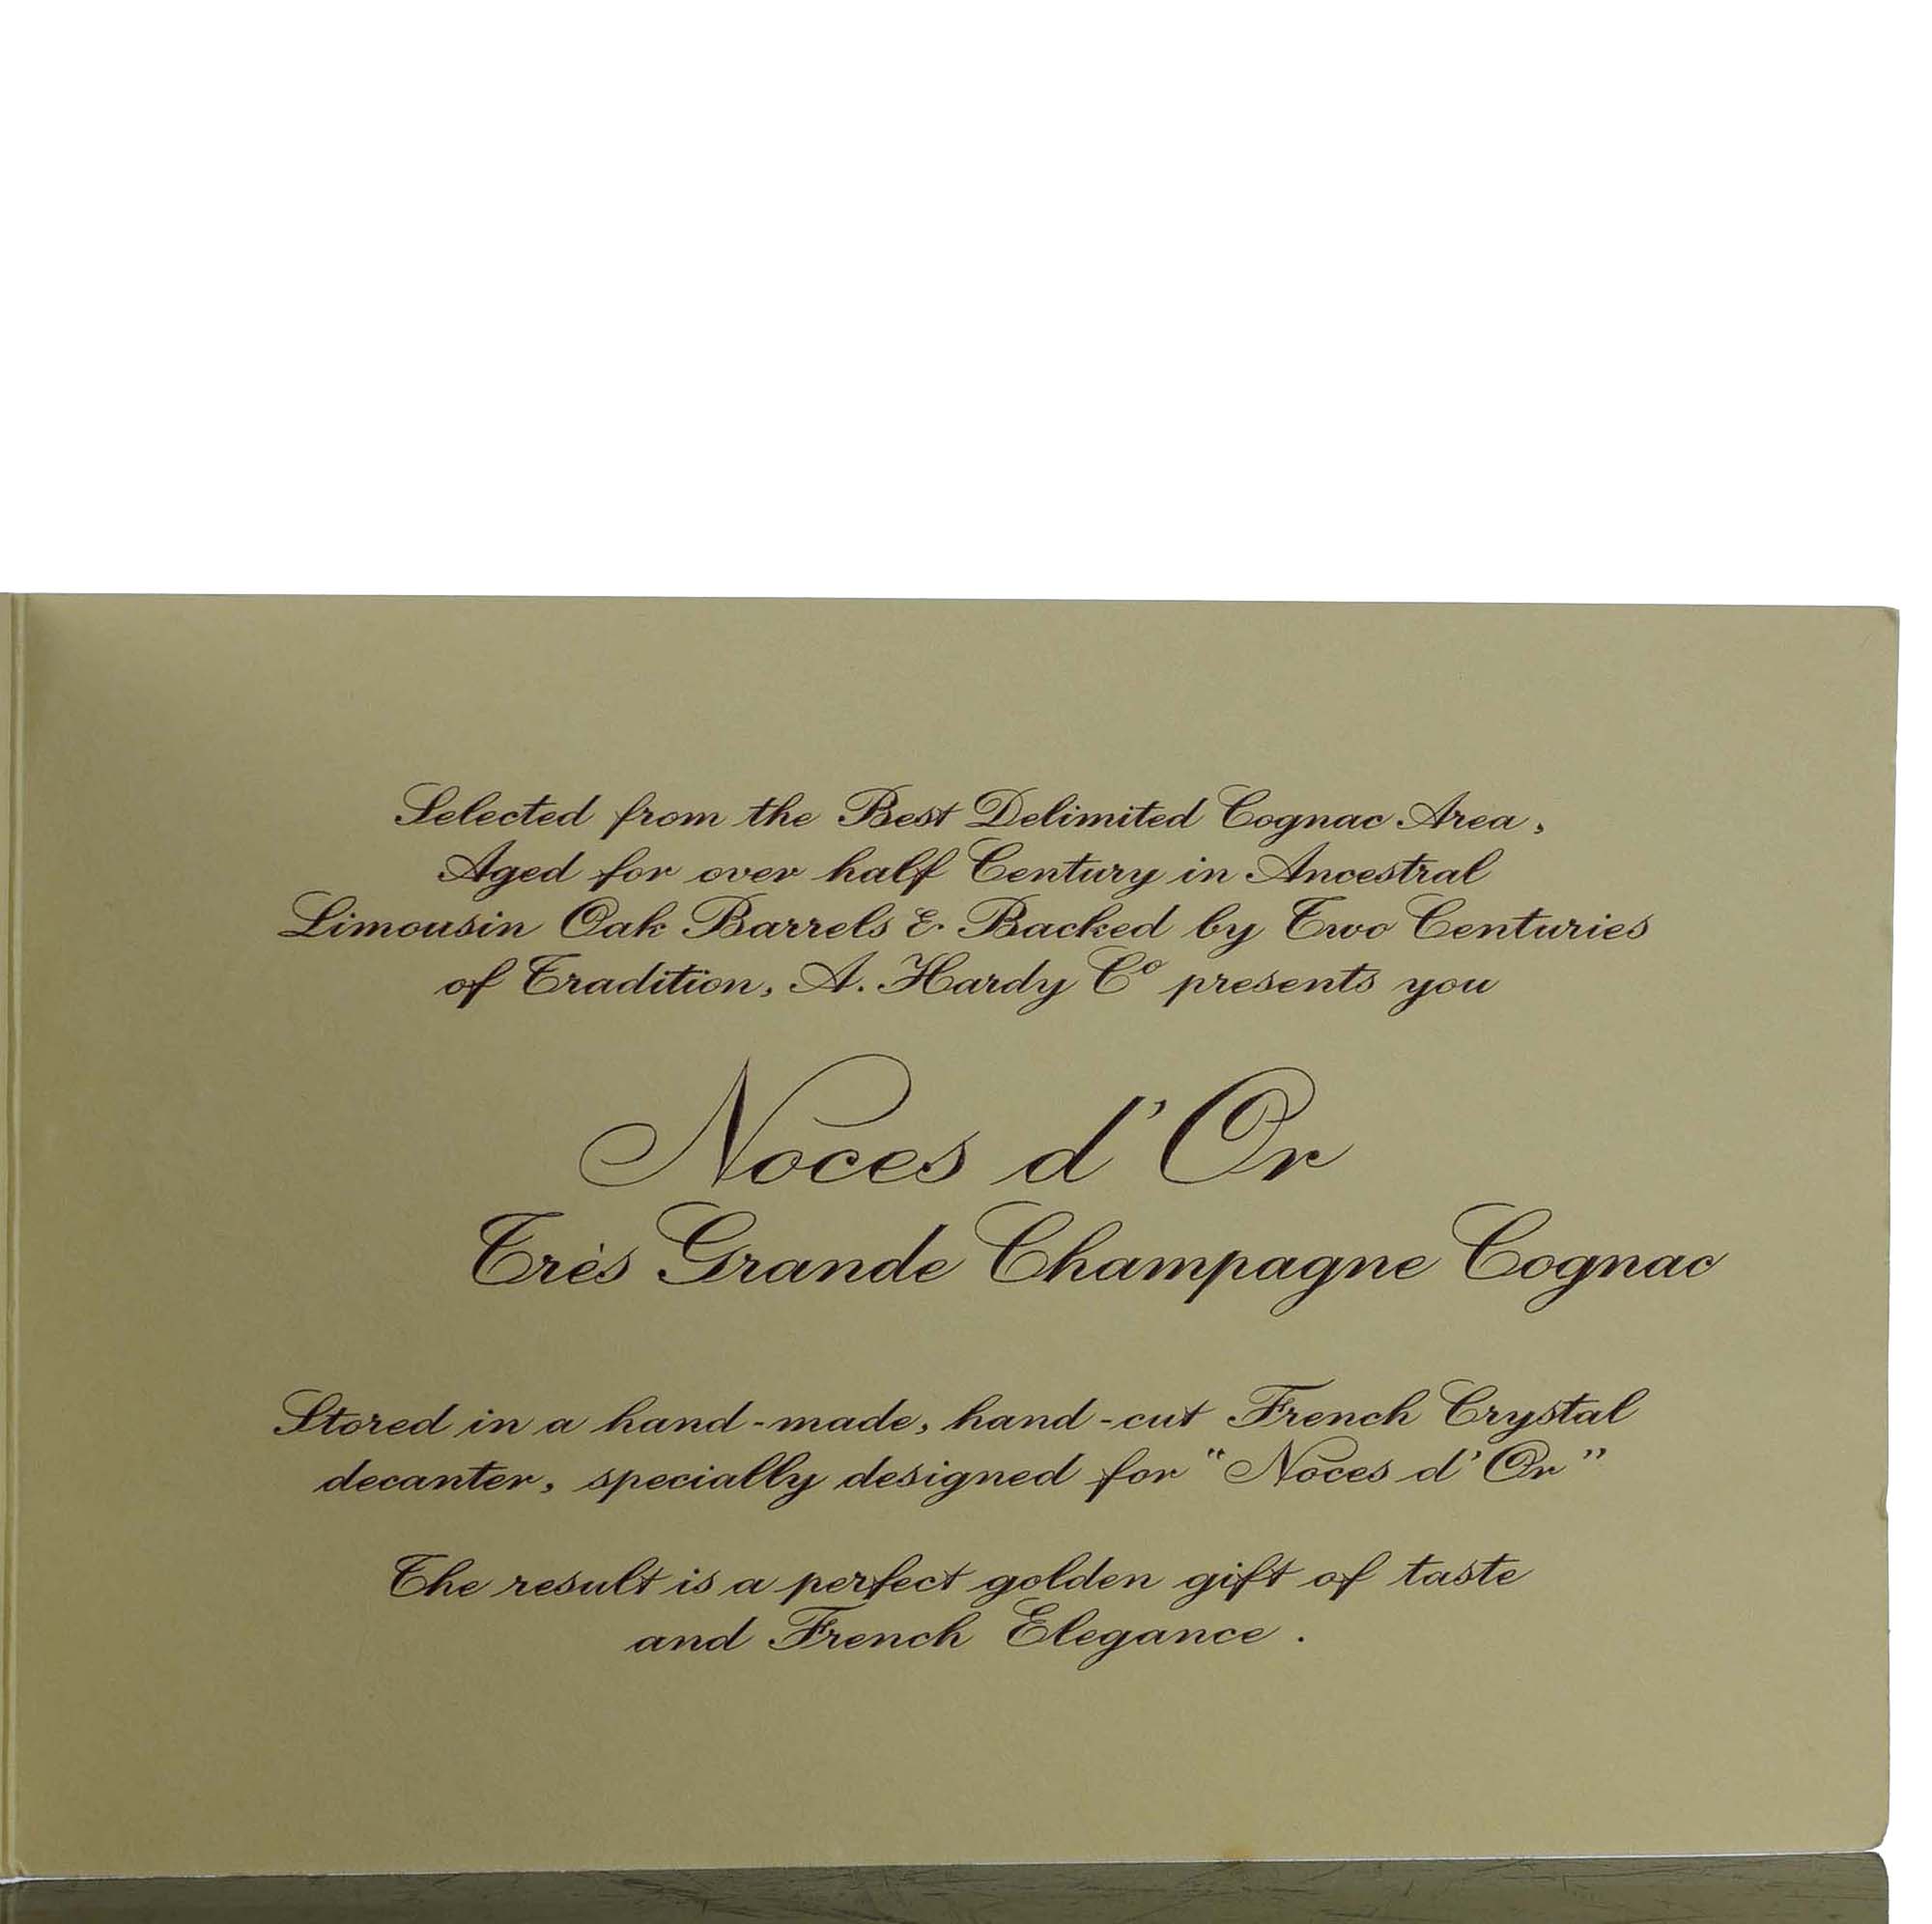 Selected from the Best Delimited Cognac Area,
Aged for over half Century in Ancestral
Limousin Oak Barrels & Backed by Two Centuries
of Tradition, A. Hardy Cº presents you
Noces d'Or
Très Grande Champagne Cognac
Stored in a hand-made, hand-cut French Crystal
decanter, specially designed for "Noces d'Or"
The result is a perfect golden gift of taste
and French Elegance.